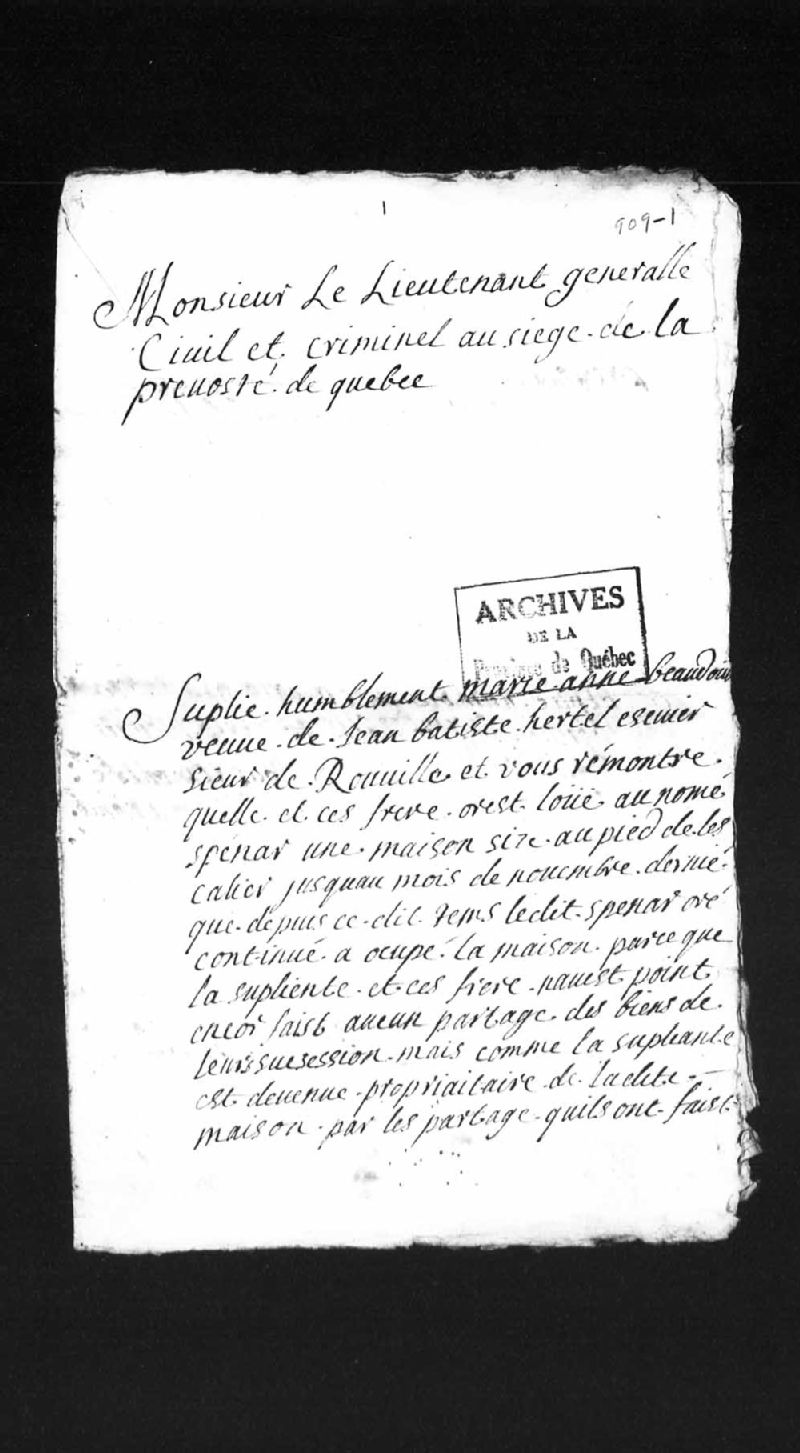 1
909-1
Monsieur Le Lieutenant generalle
Ciuil et criminel au siege de la
preuosté de quebec
ARCHIVES
DE LA
Province de Québec
Suplie humblement marie anne beaudouin
veuue de Jean batiste hertel escuier
sieur de Rouuille et vous rémontre
quelle et ces frere orest loüé au nomé
spénar une maison size au pied de les
calier jusquau mois de nouembre dernié
que depuis ce dit tems ledit spenar oré
continué a ocupé la maison parce que
la supliente et ces frere nauest point
encor faist aucun partage des biens de
leurs suesession mais comme la supliante
est deuenue propriaitaire de ladite
maison par les partage quils ont faist